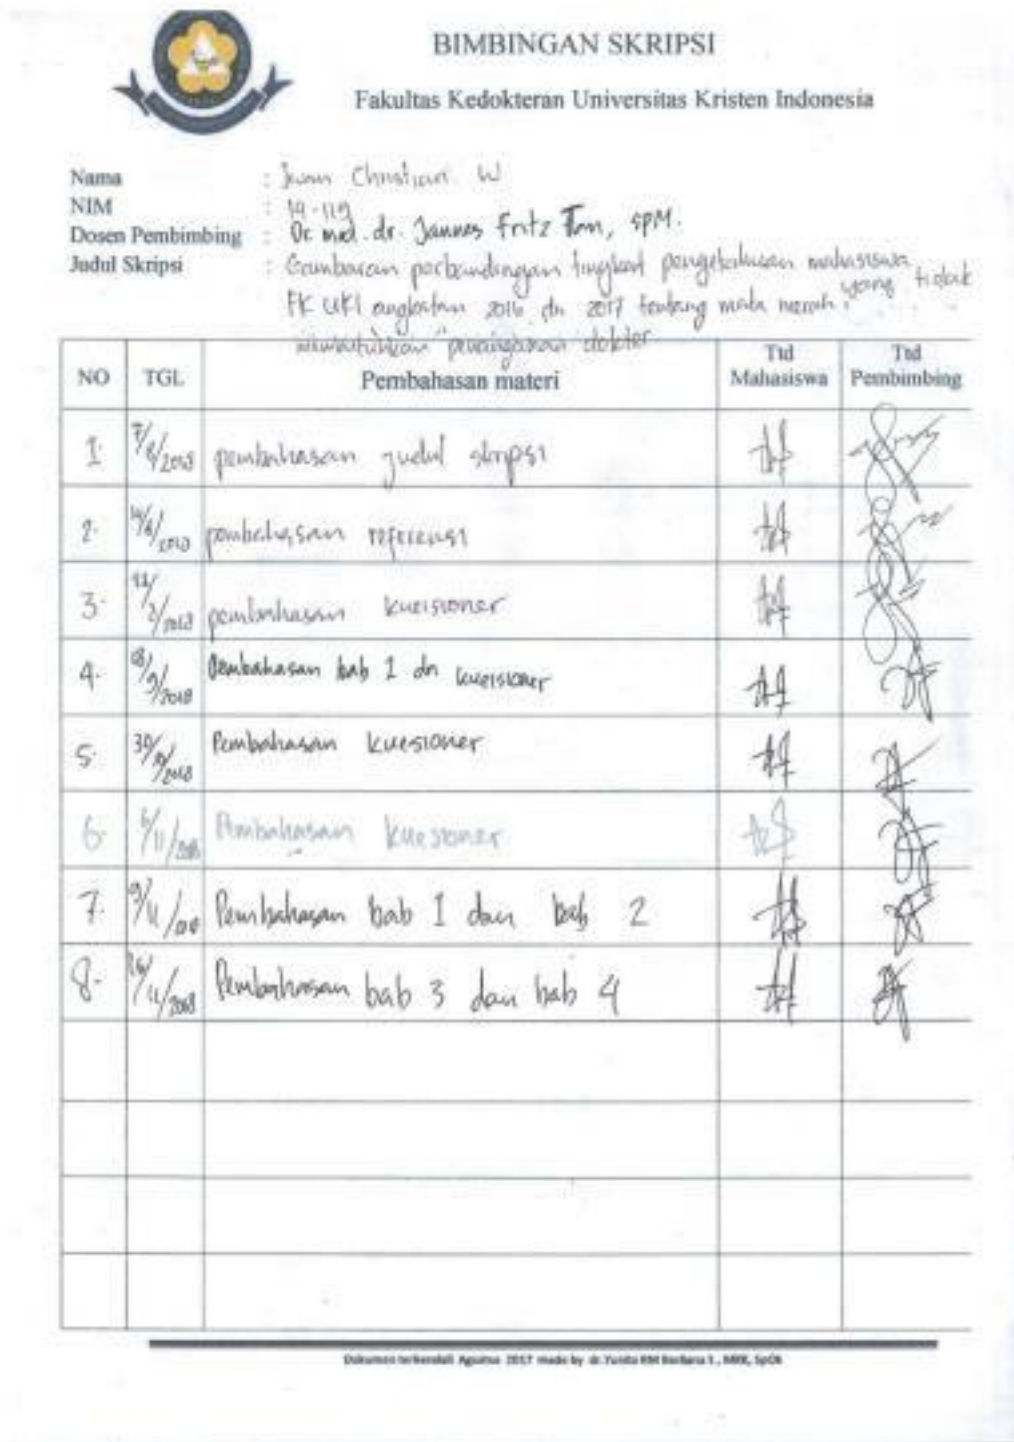 BIMBINGAN SKRIPSI
Fakultas Kedokteran Universitas Kristen Indonesia
Nama : Christian W
NIM : 14-119
Dosen Pembimbing : Dr. med. dr. Jannes Fritz Tan, SpM.
Judul Skripsi : Gambaran perbandingan tingkat pengetahuan mahasiswa
FK UKI angkatan 2016 dn 2017 tentang mata merah yang tidak
membutuhkan penanganan dokter
NO TGL Pembahasan materi Ttd Mahasiswa Ttd Pembimbing
1. 7/8/2018 pembahasan judul skripsi
2. 14/8/2018 pembahasan referensi
3. pembahasan kueisioner
4. 18/9/2018 Pembahasan bab 1 dn kueisioner
5. 30/10/2018 Pembahasan kuesioner
6. 6/11/2018 Pembahasan kuesioner
7. 9/11/2018 Pembahasan bab 1 dan bab 2
8. 26/11/2018 Pembahasan bab 3 dan bab 4
Dokumen terkendali Agustus 2017 made by dr. Yunita RM